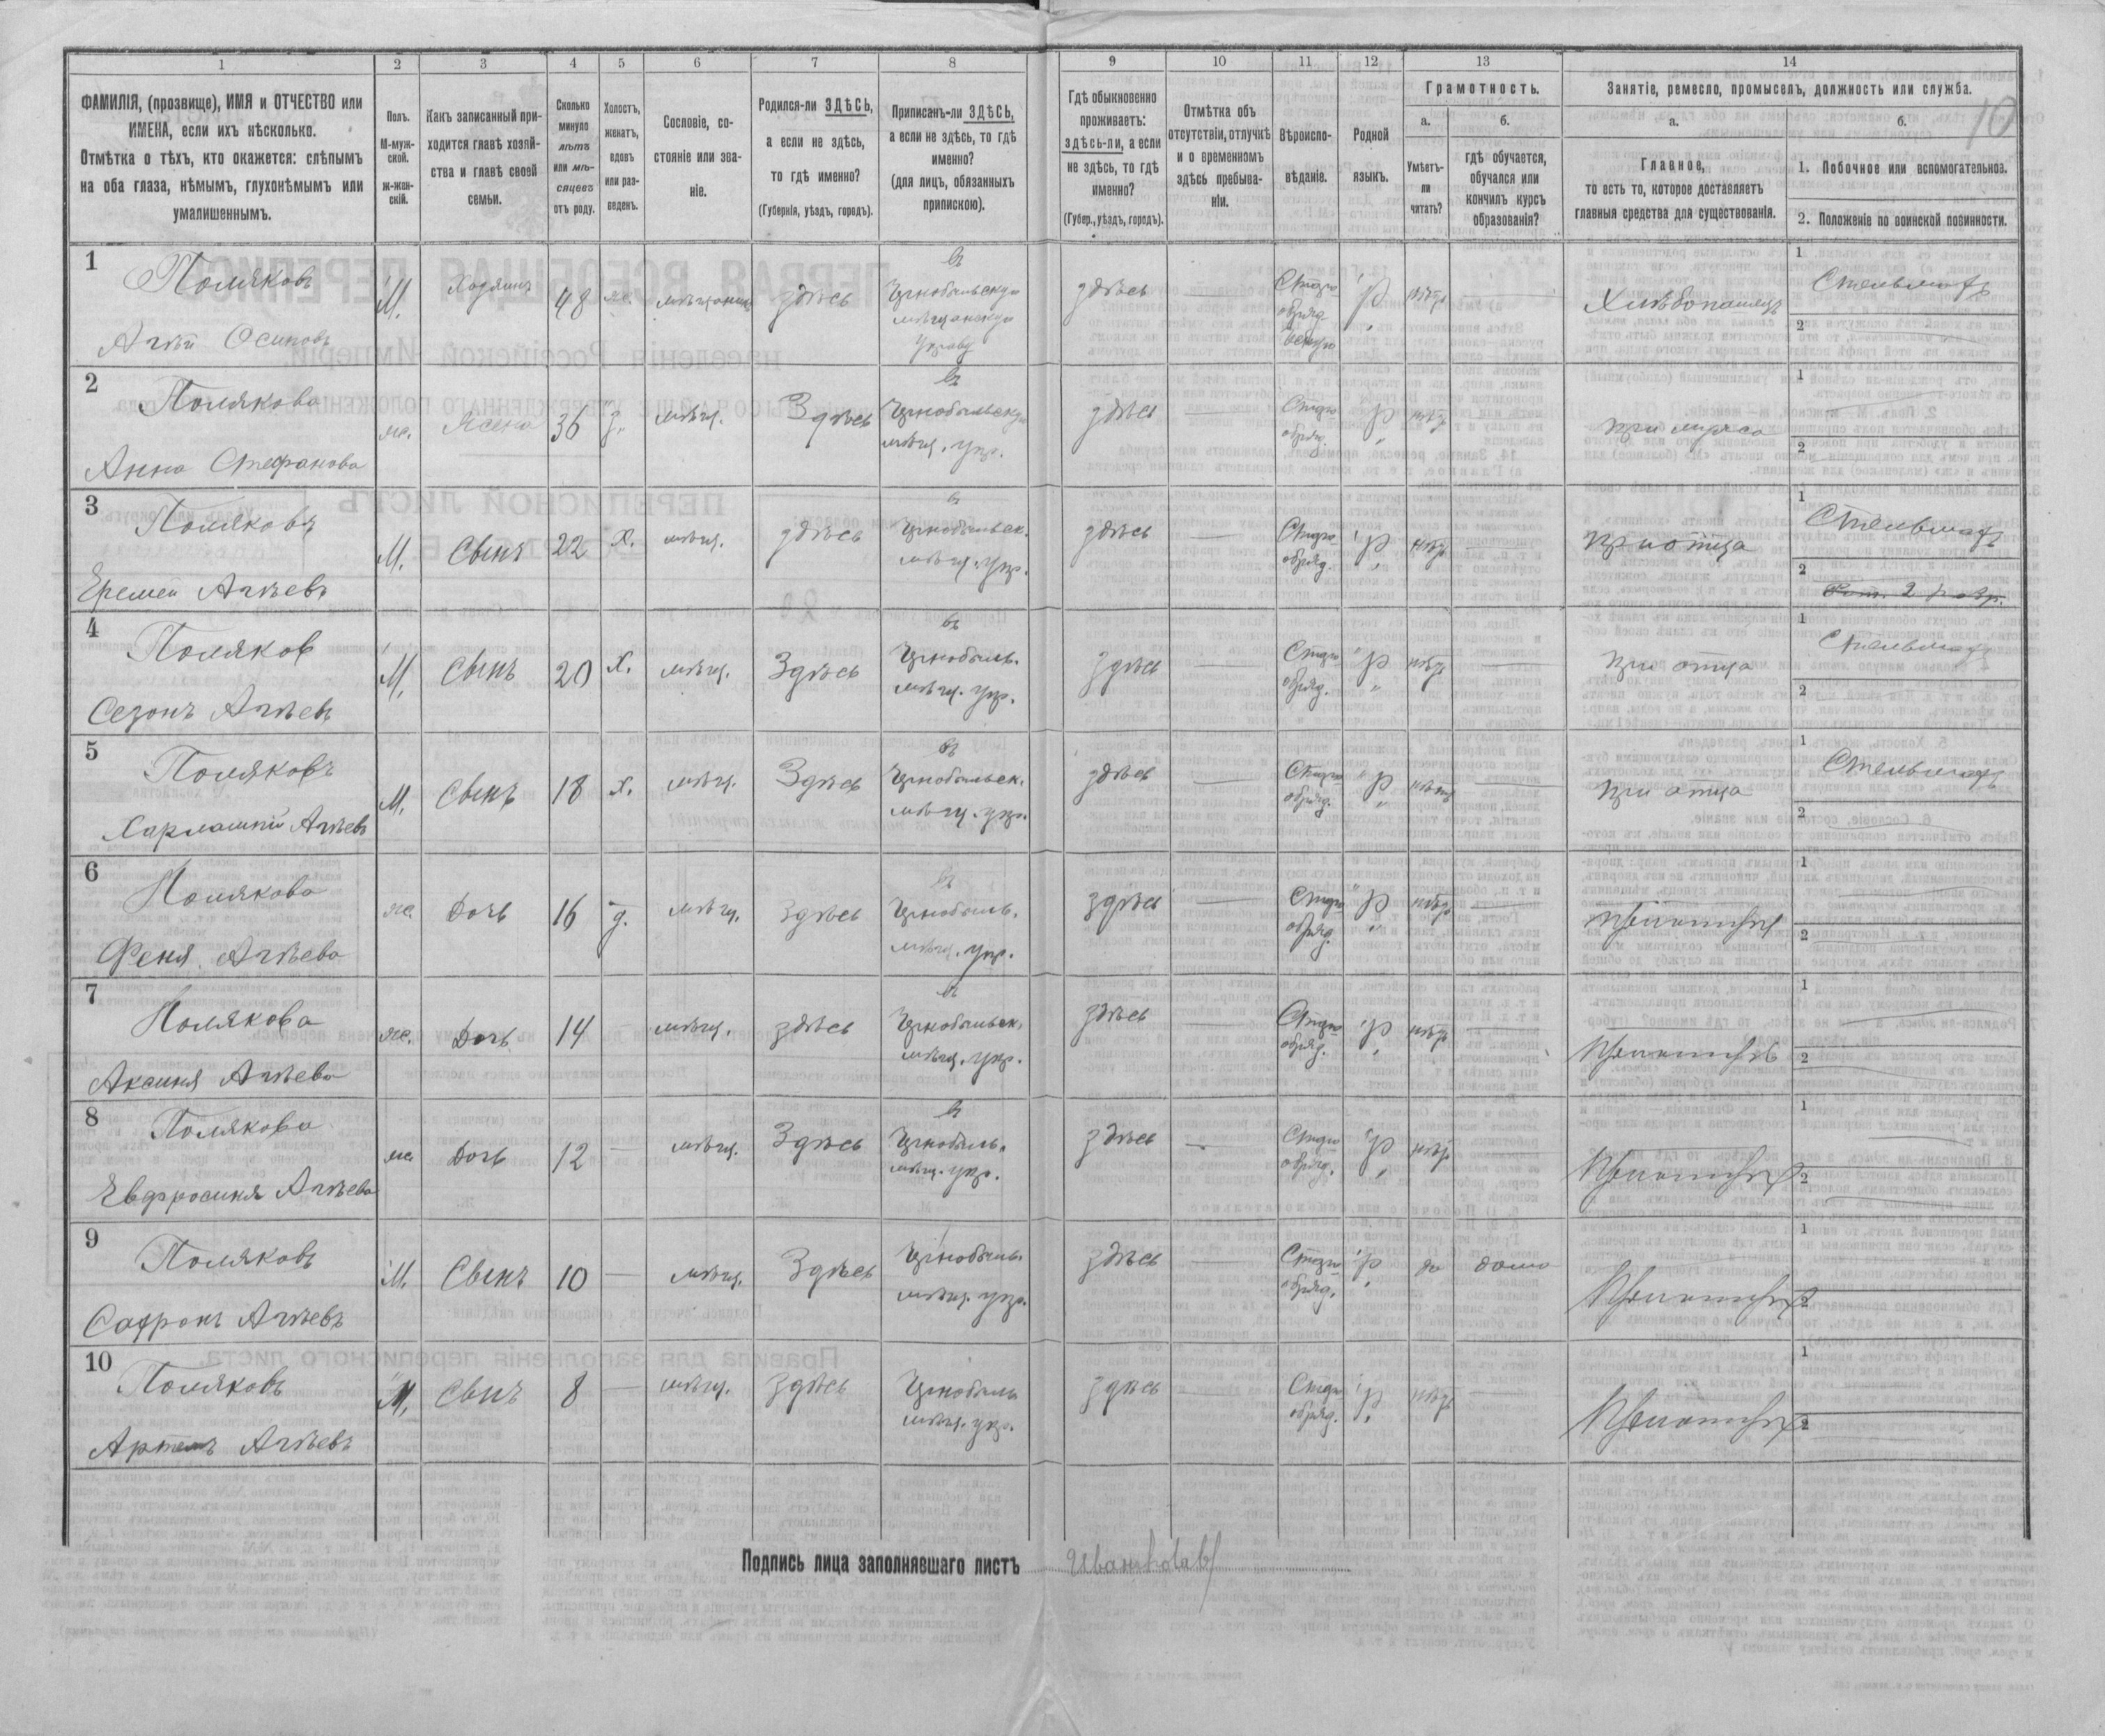 1 2 3 4 5 6 7 8 9 10 11 12 13 14
ФАМИЛІЯ, (прозвище), ИМЯ и ОТЧЕСТВО или
ИМЕНА, если ихъ нѣсколько.
Отмѣтка о тѣхъ, кто окажется: слѣпымъ
на оба глаза, нѣмымъ, глухонѣмымъ или
умалишеннымъ.
Полъ.
М-муж-
ской.
ж-жен-
скій.
Какъ записанный при-
ходится главѣ хозяй-
ства и главѣ своей
семьи.
Сколько
минуло
лѣтъ
или мѣ-
сяцевъ
отъ роду.
Холостъ,
женатъ,
вдовъ
или раз-
веденъ.
Сословіе, со-
стояніе или зва-
ніе.
Родился-ли ЗДѢСЬ,
а если не здѣсь,
то гдѣ именно?
(Губернія, уѣздъ, городъ).
Приписанъ-ли ЗДѢСЬ,
а если не здѣсь, то гдѣ
именно?
(для лицъ, обязанныхъ
припискою).
Гдѣ обыкновенно
проживаетъ:
здѣсь-ли, а если
не здѣсь, то гдѣ
именно?
(Губер., уѣздъ, городъ).
Отмѣтка объ
отсутствіи, отлучкѣ
и о временномъ
здѣсь пребыва-
ніи.
Вѣроиспо-
вѣданіе.
Родной
языкъ.
Грамотность.
а.
Умѣетъ-
ли
читать?
б.
гдѣ обучается,
обучался или
кончилъ курсъ
образованія?
Занятіе, ремесло, промыселъ, должность или служба.
10
а.
Главное,
то есть то, которое доставляетъ
главныя средства для существованія.
б.
1. Побочное или вспомогательное.
2. Положеніе по воинской повинности.
1
Поляковъ
Агѣй Осиповъ
М. Хозяинъ 48 ж. мѣщанинъ здѣсь
въ
Чернобыльскую
мѣщанскую
Управу
здѣсь — Старо
обряд. Р нѣтъ — Хлѣбопашецъ
1 Стельмахъ
2
2
Полякова
Анна Стефанова
ж. Жена 36 з. мѣщ. Здѣсь
въ
мѣщ. упр.
здѣсь — Старо
обряд. Р нѣтъ
при мужѣ
1
2
3
Поляковъ
Еремей Агѣевъ
М. Сынъ 22 х. мѣщ. здѣсь
въ
мѣщ. упр.
здѣсь — Старо
обряд. Р нѣтъ —
при отца
1 Стельмахъ
2
4
Поляков
Сезонъ Агѣевъ
М. Сынъ 20 х. мѣщ. Здѣсь
въ
мѣщ. упр.
Здѣсь — Старо
обряд. Р нѣтъ —
при отца
1 Стельмахъ
2
5
Поляковъ
Харлампій Агѣевъ
М. Сынъ 18 х. мѣщ. Здѣсь
въ
мѣщ. упр.
здѣсь — Старо
обряд. Р нѣтъ —
при отца
1 Стельмахъ
2
6
Полякова
Феня Агѣева
ж. Дочь 16 д. мѣщ. Здѣсь
въ
мѣщ. упр.
здѣсь — Старо
обряд. Р нѣтъ —
1
2
7
Полякова
Аксинія Агѣева
ж. Дочь 14 — мѣщ. здѣсь
въ
мѣщ. упр.
здѣсь Старо
обряд. Р нѣтъ —
1
2
8
Полякова
Евфросинія Агѣева
ж. Дочь 12 — мѣщ. Здѣсь
въ
мѣщ. упр.
здѣсь — Старо
обряд. Р нѣтъ
1
2
9
Поляковъ
Сафронъ Агѣевъ
М. Сынъ 10 — мѣщ. Здѣсь
мѣщ. упр.
здѣсь — Старо
обряд. Р да дома
1
2
10
Поляковъ
Артемъ Агѣевъ
М. Сынъ 8 — мѣщ. здѣсь
мѣщ. упр.
здѣсь — Старо
обряд. Р нѣтъ —
1
2
Подпись лица заполнявшаго листъ